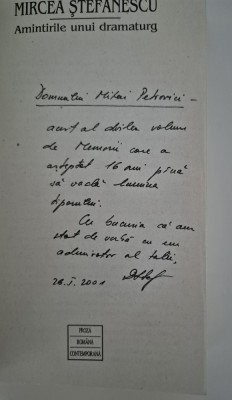 MIRCEA ȘTEFĂNESCU
Amintirile unui dramaturg
Domnului Mihai Petrovici —
acest al doilea volum
de Memorii care a
așteptat 16 ani până
să vadă lumina
tiparului.
Cu bucuria că am
stat de vorbă cu un
admirator al tatălui,
26.I.2001
PROZA
ROMÂNĂ
CONTEMPORANĂ